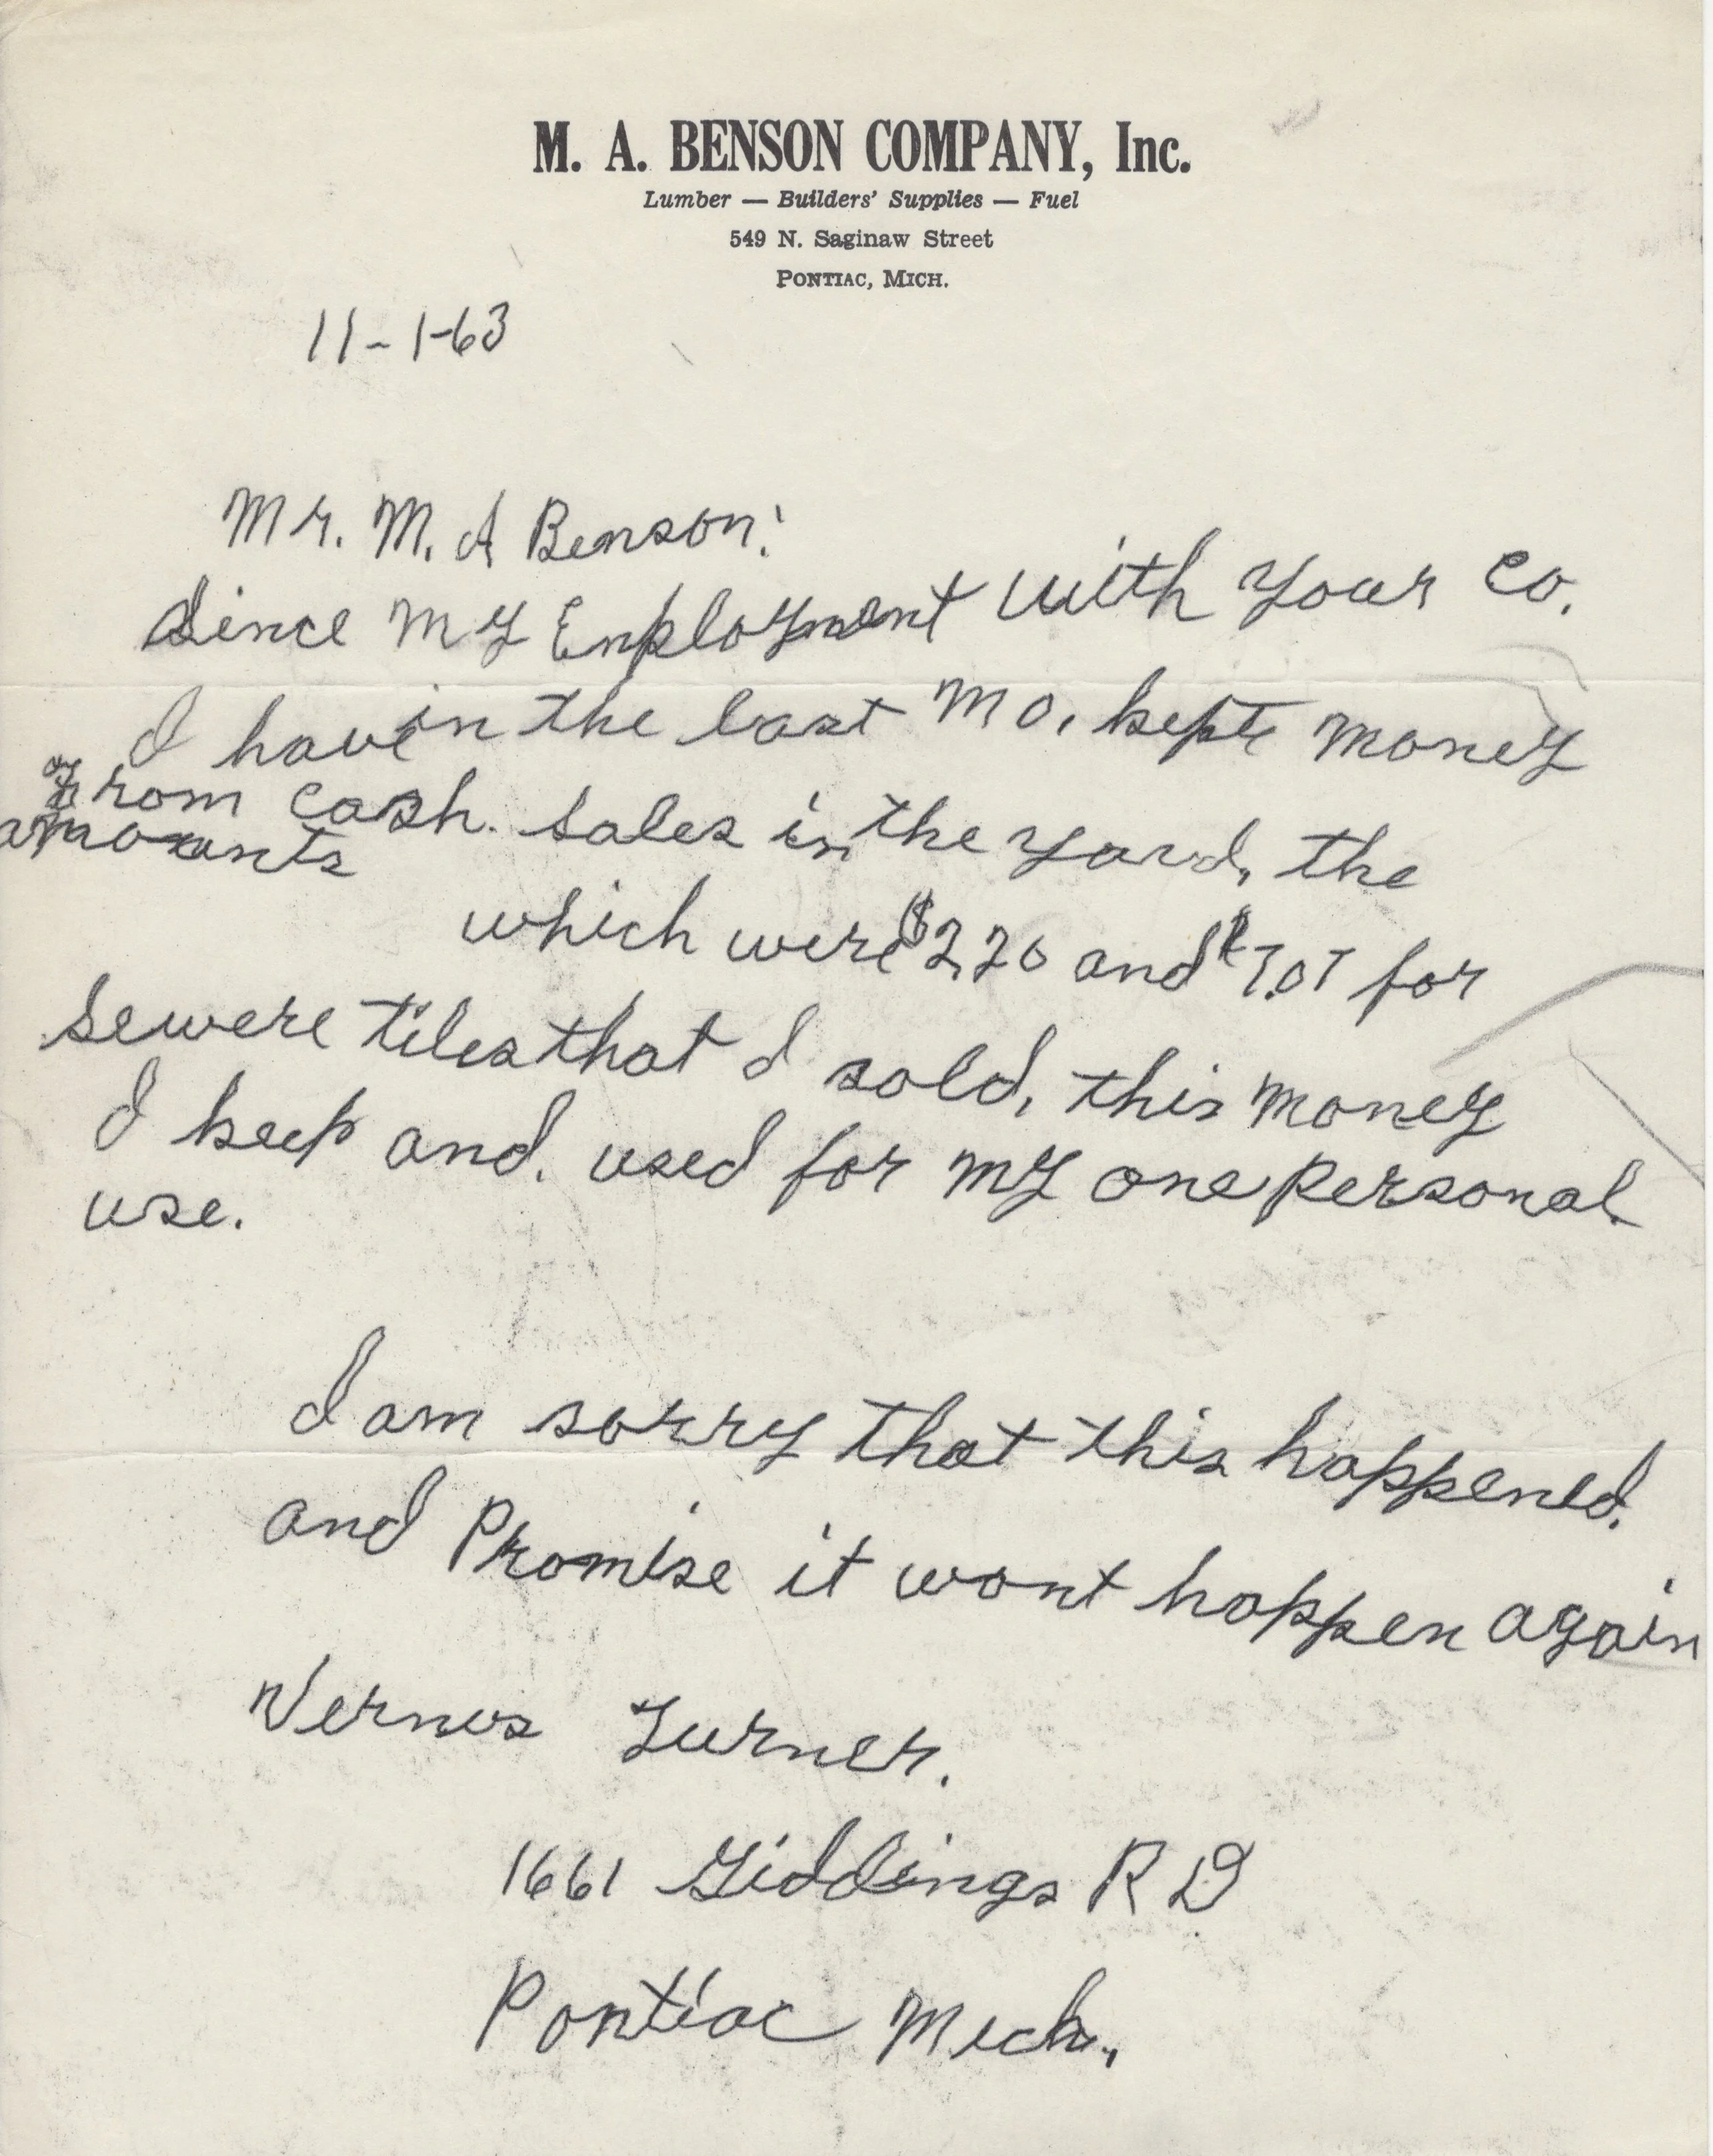 M. A. BENSON COMPANY, Inc.
Lumber — Builders' Supplies — Fuel
549 N. Saginaw Street
PONTIAC, MICH.
11-1-63
Mr. M. A Benson:
Since My Employment with your Co.
I have in the last Mo. kept money
from cash. sales in the yard, the
amounts of
which were $2.20 and $7.07 for
sewere tiles that I sold, this money
I keep and. used for my one personal
use.
I am sorry that this happened.
and Promise it wont happen again
Vernos Turner.
1661 Giddings RD
Pontiac Mich.,